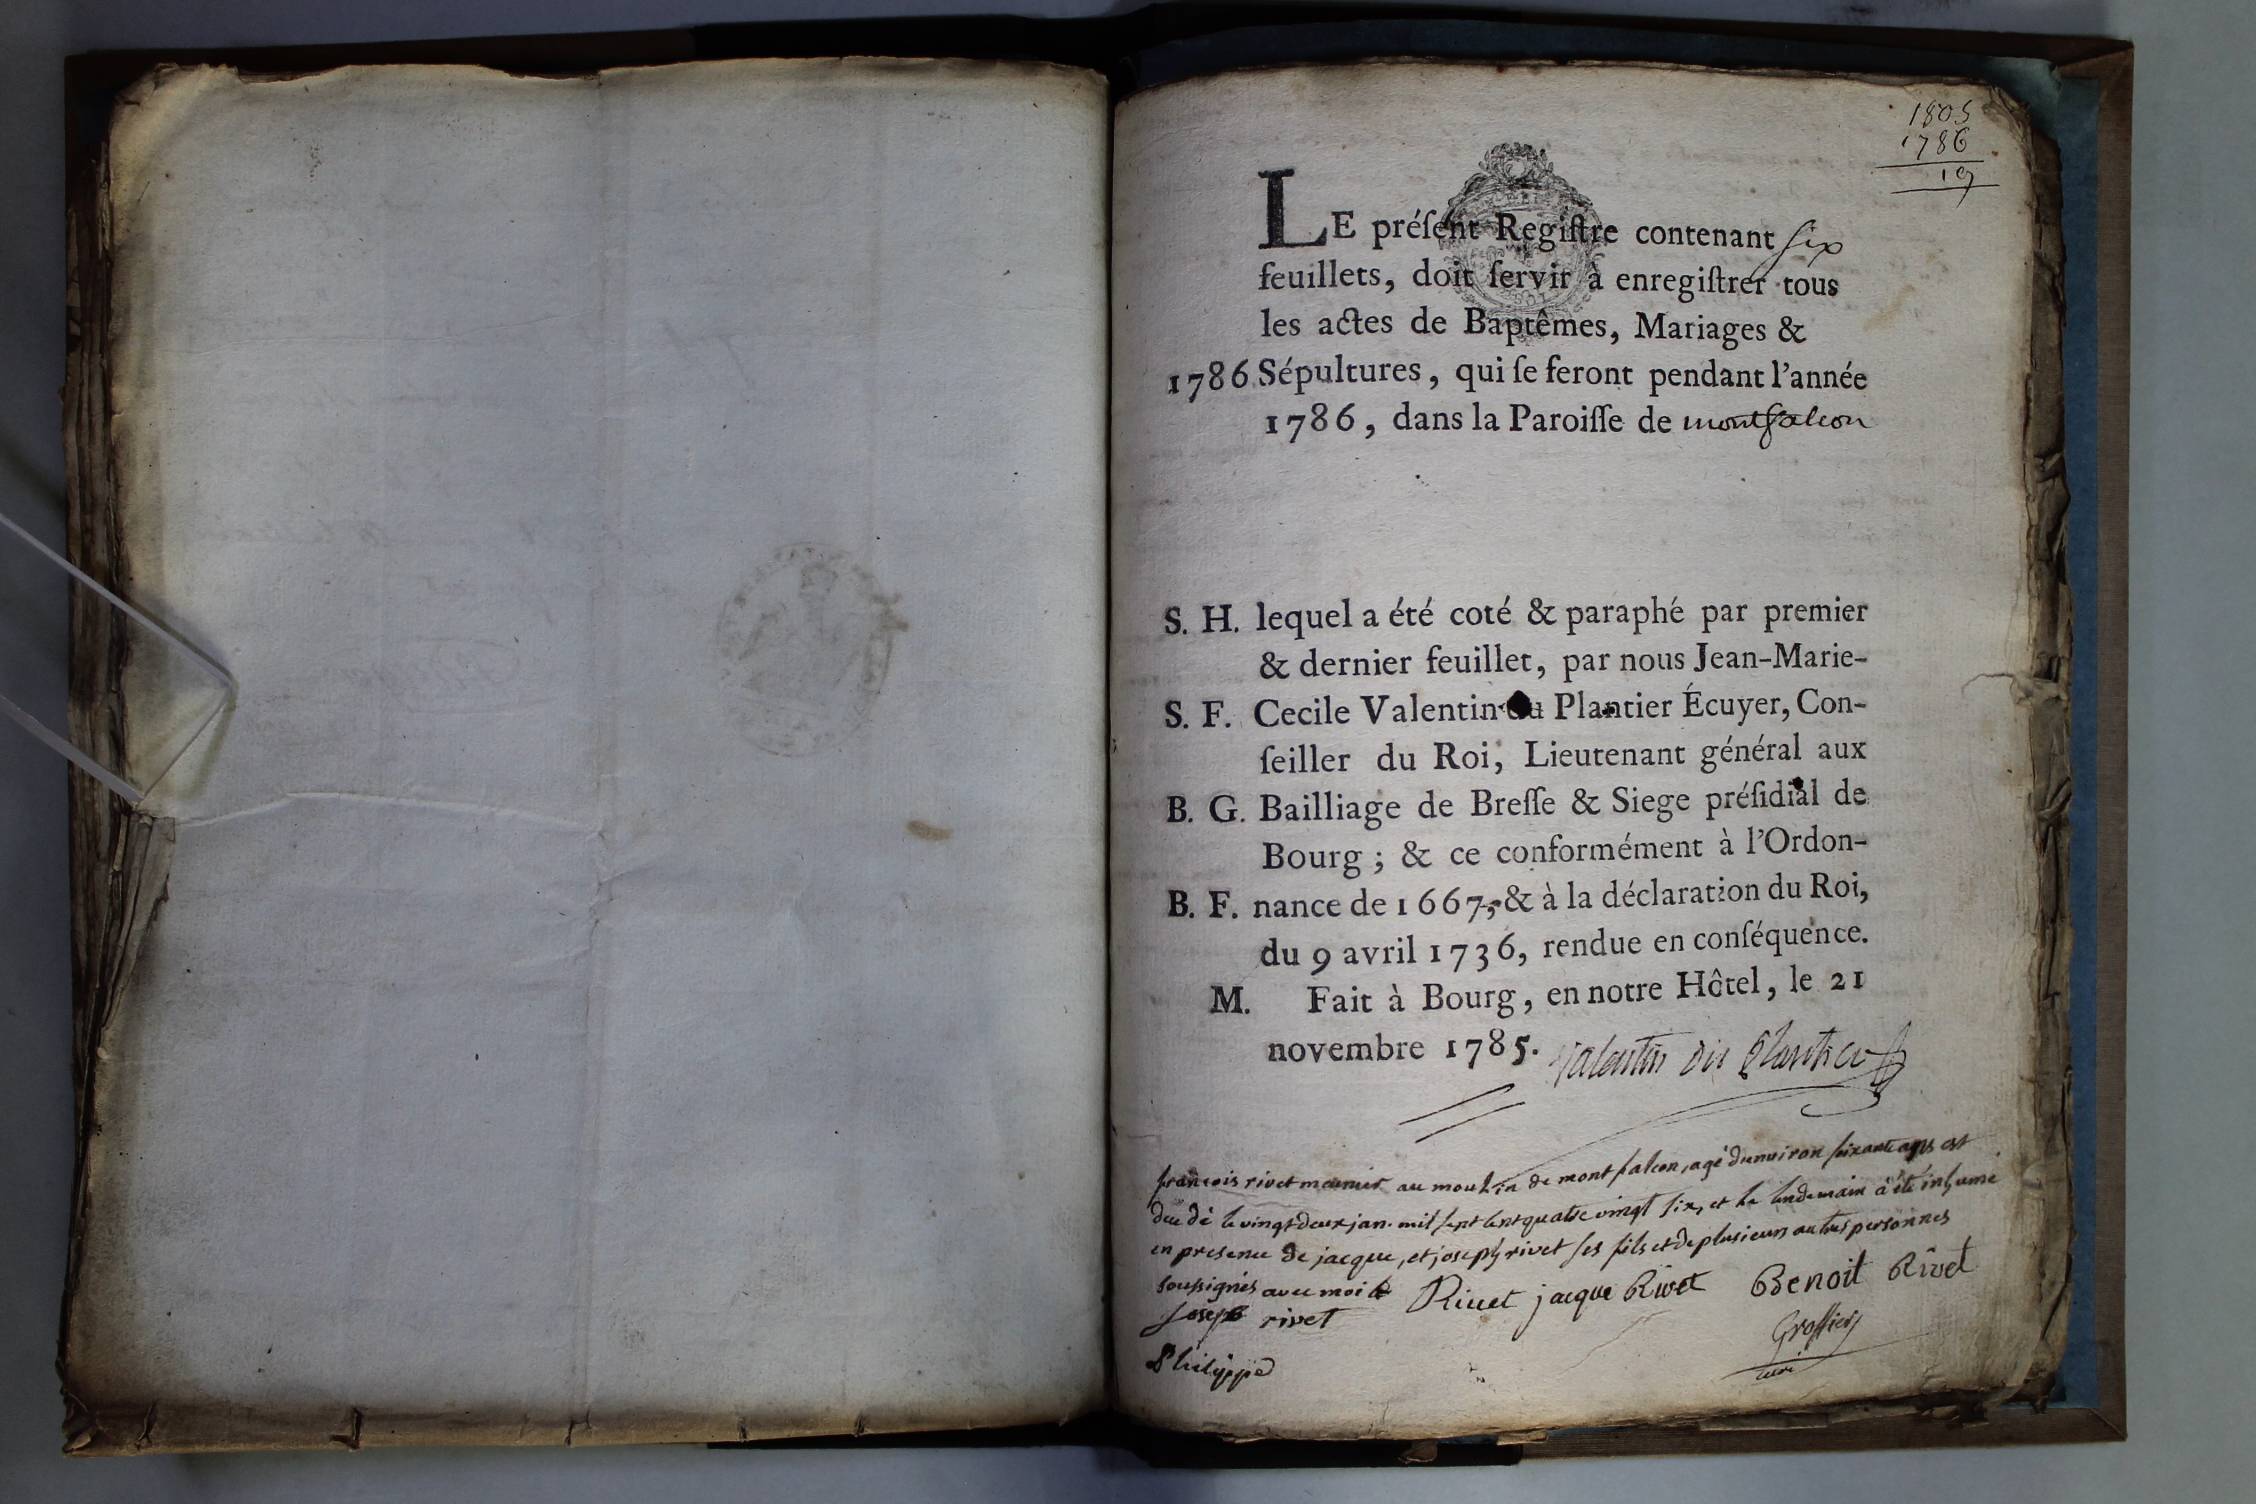 1805
1786
19
LE préſent Regiſtre contenant six
feuillets, doit ſervir à enregiſtrer tous
les actes de Baptêmes, Mariages &
1786 Sépultures, qui ſe feront pendant l'année
1786, dans la Paroiſſe de montfalcon
S. H. lequel a été coté & paraphé par premier
& dernier feuillet, par nous Jean-Marie-
S. F. Cecile Valentin du Plantier Écuyer, Con-
ſeiller du Roi, Lieutenant général aux
B. G. Bailliage de Breſſe & Siege préſidial de
Bourg ; & ce conformément à l'Ordon-
B. F. nance de 1667, & à la déclaration du Roi,
du 9 avril 1736, rendue en conſéquence.
M. Fait à Bourg, en notre Hôtel, le 21
novembre 1785. Valentin du Plantier
françois rivet meunier au moulin de montfalcon, agé d'enuiron soixante ans est
decedé le vingt deux jan. mil sept cent quatre vingt six, et le lendemain a été inhumé
en presence de jacque, et joseph rivet ses fils et de plusieurs autres personnes
soussignés avec moi Riuet jacque Rivet Benoit Rivet
Joseph rivet
Philippe
Groffier
curé